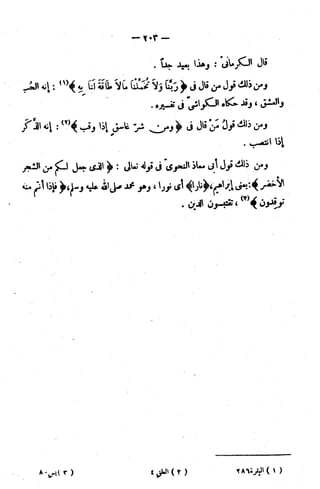 — ٢٠٣ —
قال الكرمانىّ : وهذا بعيد جداً .
ومن ذلك قول من قال فى ﴿ رَبَّنَا وَلاَ تُحَمِّلْنَا مَالاَ طَاقَةَ لَنَا بِهِ ﴾(١) : إنه الحُبّ
والعشق ، وقد حكاه الكواشىّ فى تفسيره .
ومن ذلك قولُ مَنْ قال فى ﴿ ومن شرّ غاسق إذا وقب ﴾(٢) : إنه الذَّكر
إذا انتصب .
ومن ذلك قول أبى معاذ النحوىّ فى قوله تعالى : ﴿ الذى جعل لكم من الشجر
الأخضر ﴾: يعنى إبراهيم، ﴿ نارا ﴾ أى نورا ، وهو محمد صلى الله عليه وسلم، ﴿ فإذا أنتم منه
توقدون ﴾(٣) ، تقتبسون الدين .
( ١ ) البقرة ٢٨٦ ( ٢ ) الفلق ٤ ( ٣ ) يس ٨٠